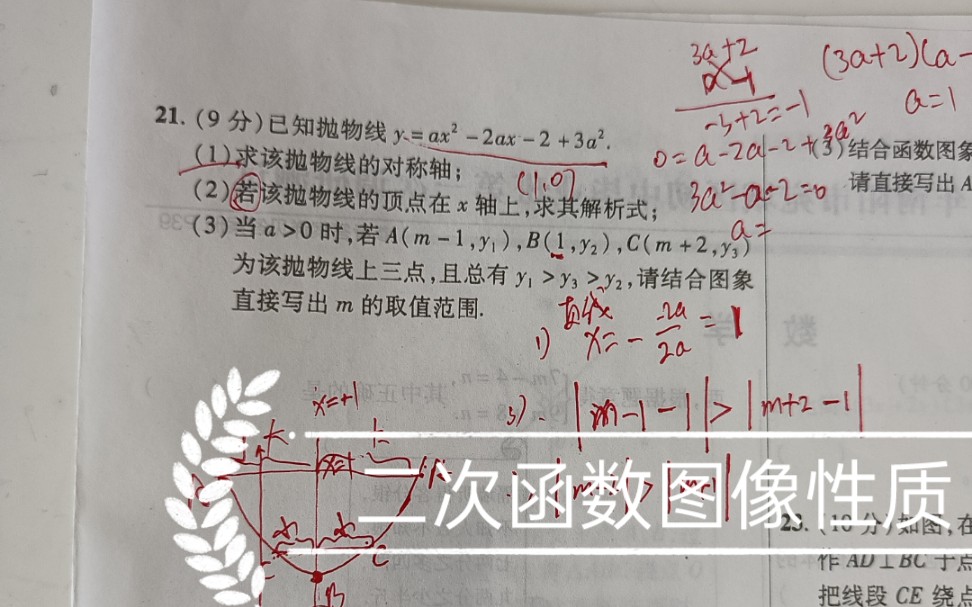 21. (9 分)已知抛物线 y=ax²-2ax-2+3a².
(1)求该抛物线的对称轴;
(2)若该抛物线的顶点在 x 轴上,求其解析式;
(3)当 a>0 时,若 A(m-1,y₁),B(1,y₂),C(m+2,y₃)
为该抛物线上三点,且总有 y₁>y₃>y₂,请结合图象
直接写出 m 的取值范围.
(1,0)
3a+2
a -1
-3+2=-1
(3a+2)(a-
a=1
0=a-2a-2+3a²
3a²-a-2=0
a=
(3)结合函数图象
请直接写出 A
1) x=- -2a/2a =1
3). |m-1-1|>|m+2-1|
x=+1
B
C
数 学
二次函数图像性质
23. (10 分)如图,在
作 AD⊥BC 于点
把线段 CE 绕点